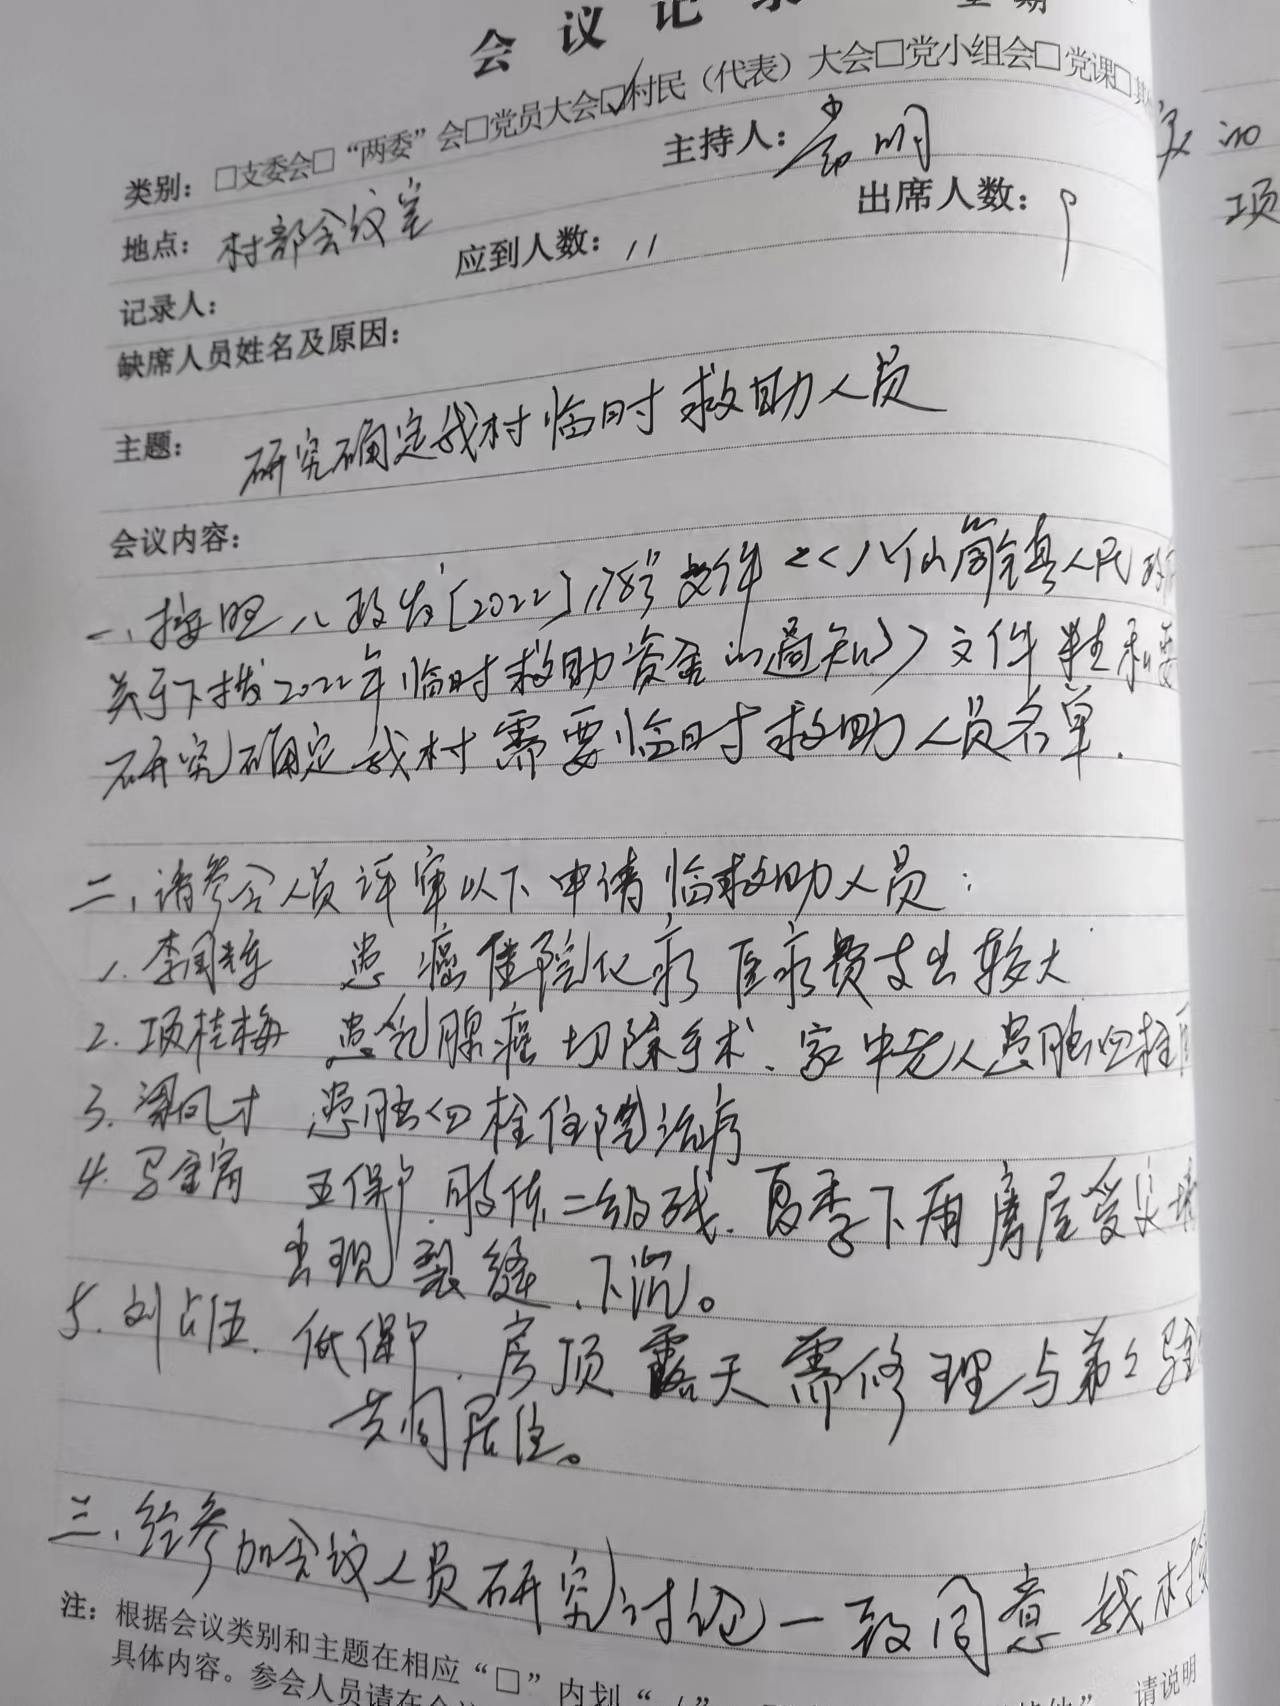 会议记录
星期
类别：□支委会□“两委”会□党员大会☑村民（代表）大会□党小组会□党课□其
地点：村部会议室 主持人：常明
记录人： 应到人数：11 出席人数：9
缺席人员姓名及原因：
主题： 研究确定我村临时救助人员
会议内容：
一、接照八政发[2022]178号文件<<八仙筒镇人民政府
关于下拨2022年临时救助资金的通知>>文件精神要
研究确定我村需要临时救助人员名单.
二、请参会人员评审以下申请临救助人员：
1. 李国 患癌住院化疗医疗费支出较大
2. 项桂梅 患乳腺癌切除手术、家中老人患脑血栓
3. 梁凤才 患脑血栓住院治疗
4. 马金 五保户.肢体二级残.夏季下雨房屋受灾墙
出现裂缝、下沉。
5. 刘占伍. 低保户.房顶露天需修理与弟弟
共同居住。
三、经参加会议人员研究讨论一致同意我村
注：根据会议类别和主题在相应“□”内划“
具体内容。参会人员请在会 请说明
的
项